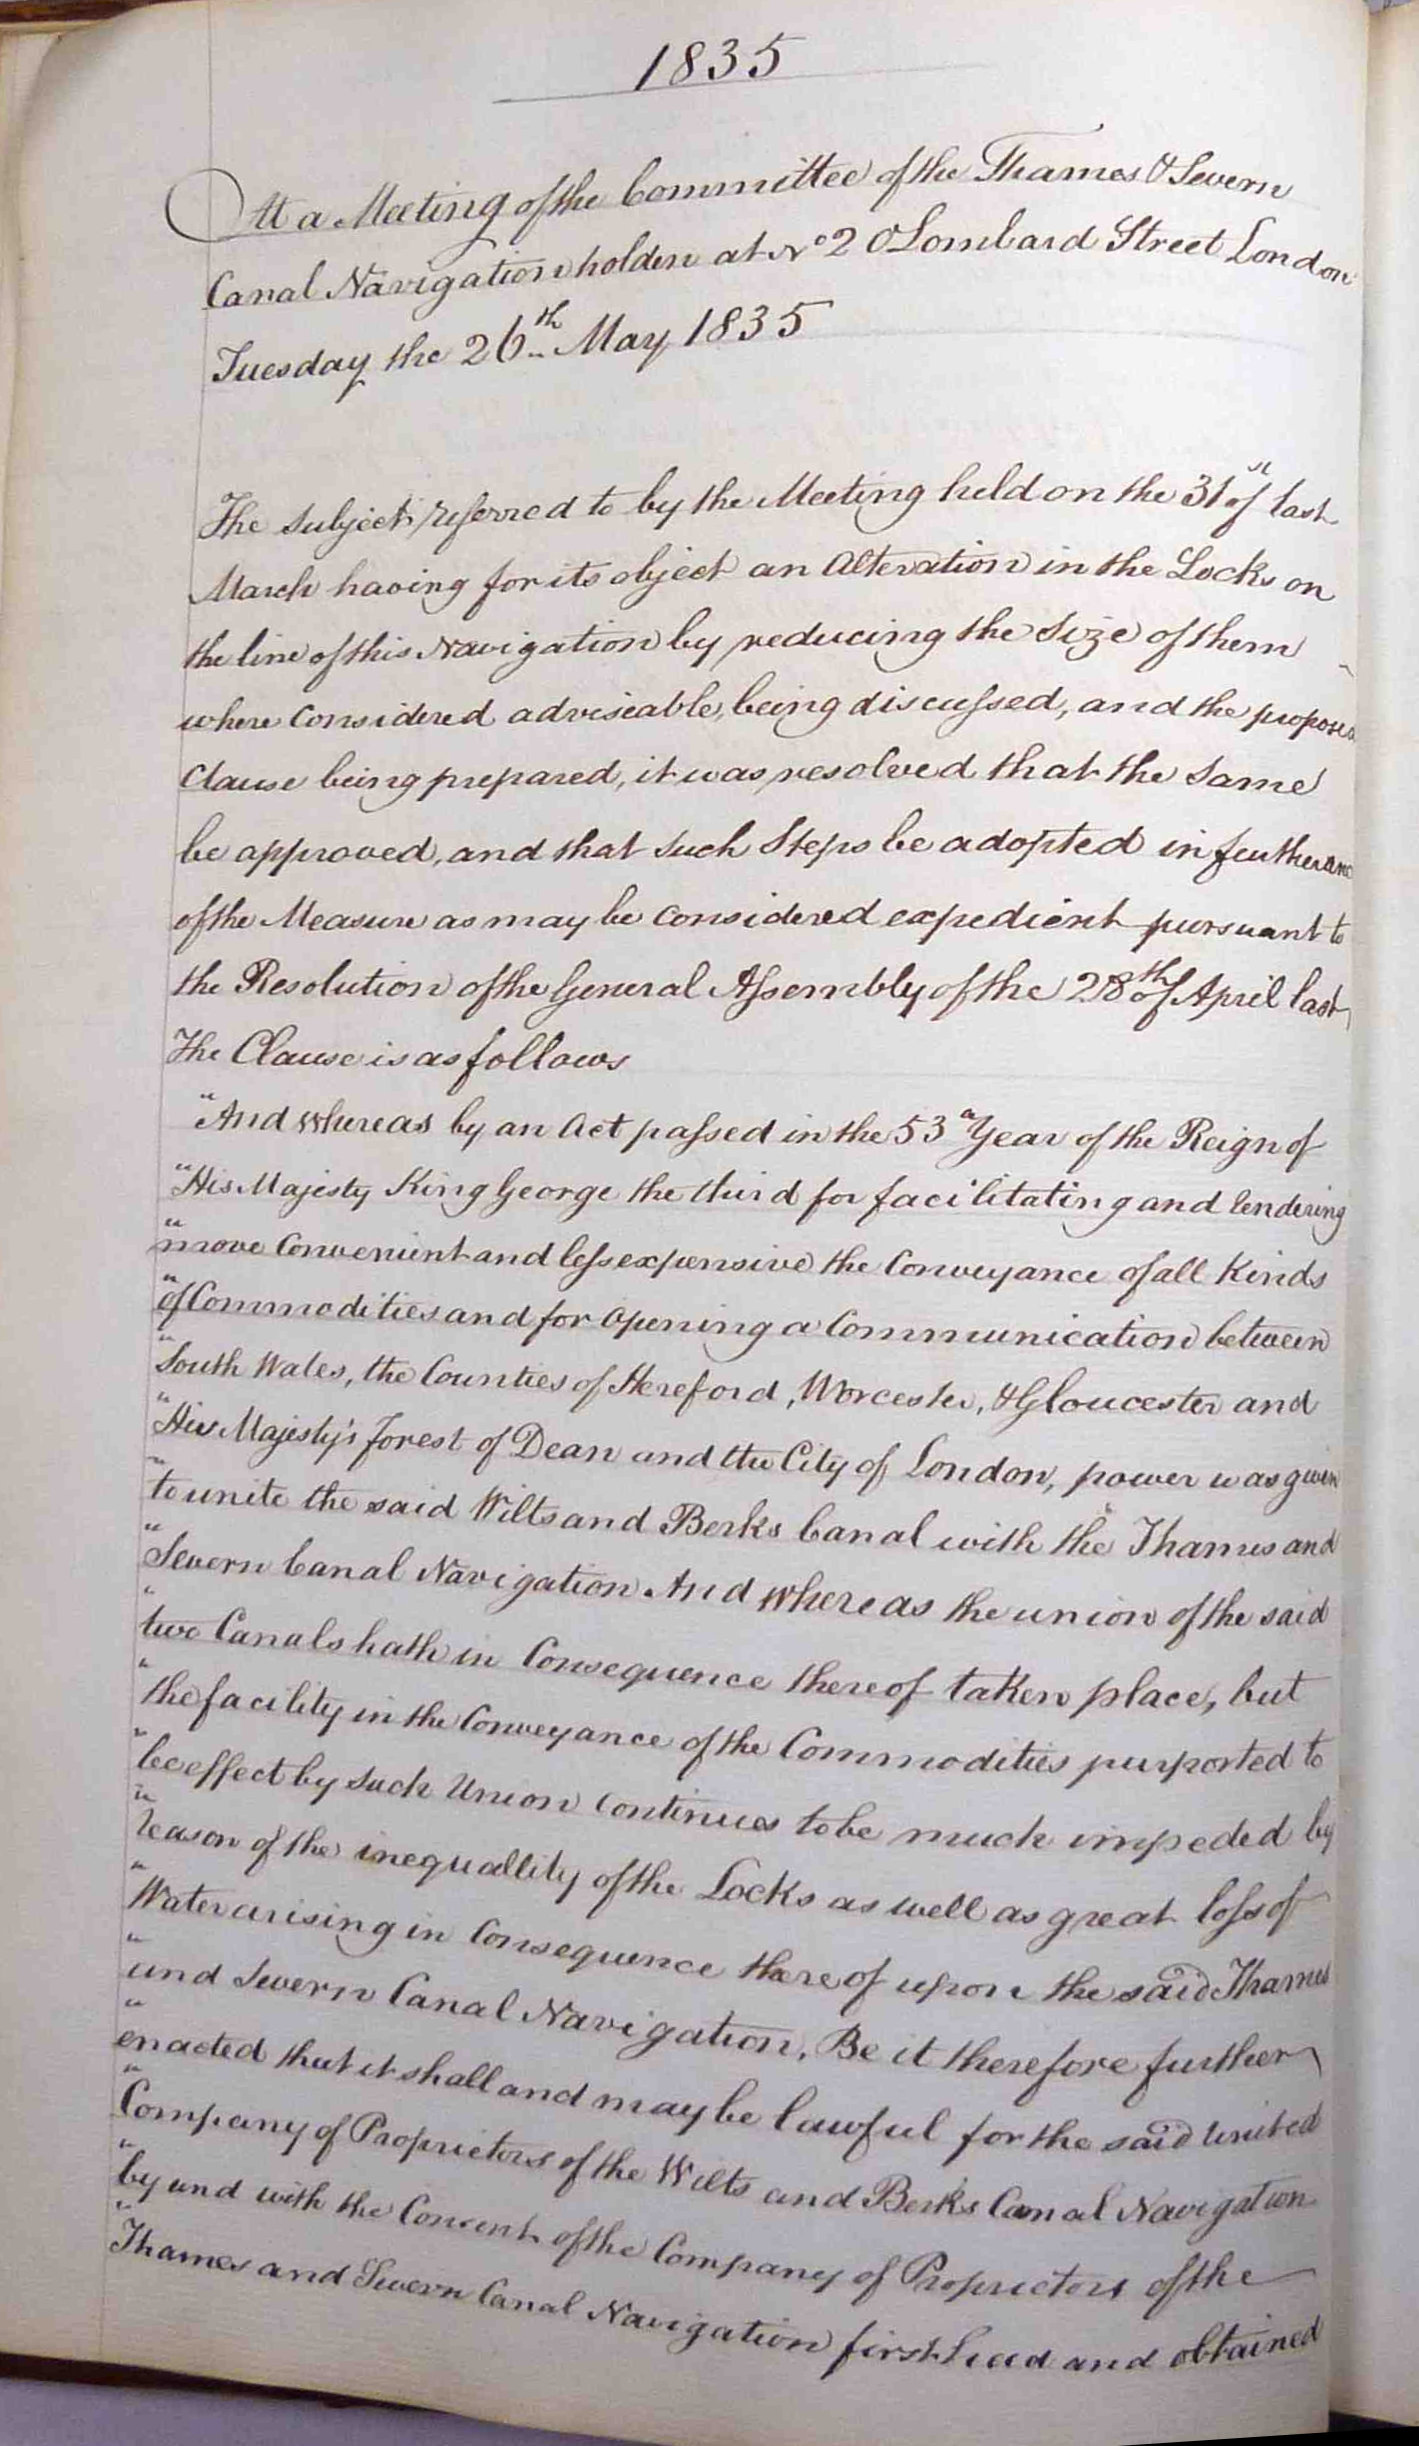 1835
At a Meeting of the Committee of the Thames & Severn
Canal Navigation holden at No 20 Lombard Street London
Tuesday the 26th May 1835
The Subject referred to by the Meeting held on the 31st of last
March having for its object an Alteration in the Locks on
the line of this Navigation by reducing the Size of them
where Considered adviseable, being discussed, and the proposed
Clause being prepared, it was resolved that the Same
be approved, and that such Steps be adopted in furtherance
of the Measure as may be Considered expedient pursuant to
the Resolution of the General Assembly of the 28th of April last
The Clause is as follows
"And Whereas by an Act passed in the 53d Year of the Reign of
"His Majesty King George the third for facilitating and rendering
"more Convenient and less expensive the Conveyance of all Kinds
"of Commodities and for Opening a Communication between
"South Wales, the Counties of Hereford, Worcester, & Gloucester and
"His Majesty's Forest of Dean and the City of London, power was given
"to unite the said Wilts and Berks Canal with the Thames and
"Severn Canal Navigation And Whereas the union of the said
"two Canals hath in Consequence thereof taken place, but
"the facility in the Conveyance of the Commodities purported to
"be effect by such Union Continues to be much impeded by
"reason of the inequallity of the Locks as well as great loss of
"Water arising in Consequence thereof upon the said Thames
"and Severn Canal Navigation, Be it therefore further
"enacted that it shall and may be lawful for the said United
"Company of Proprietors of the Wilts and Berks Canal Navigation
"by and with the Consent of the Company of Proprietors of the
"Thames and Severn Canal Navigation first had and obtained